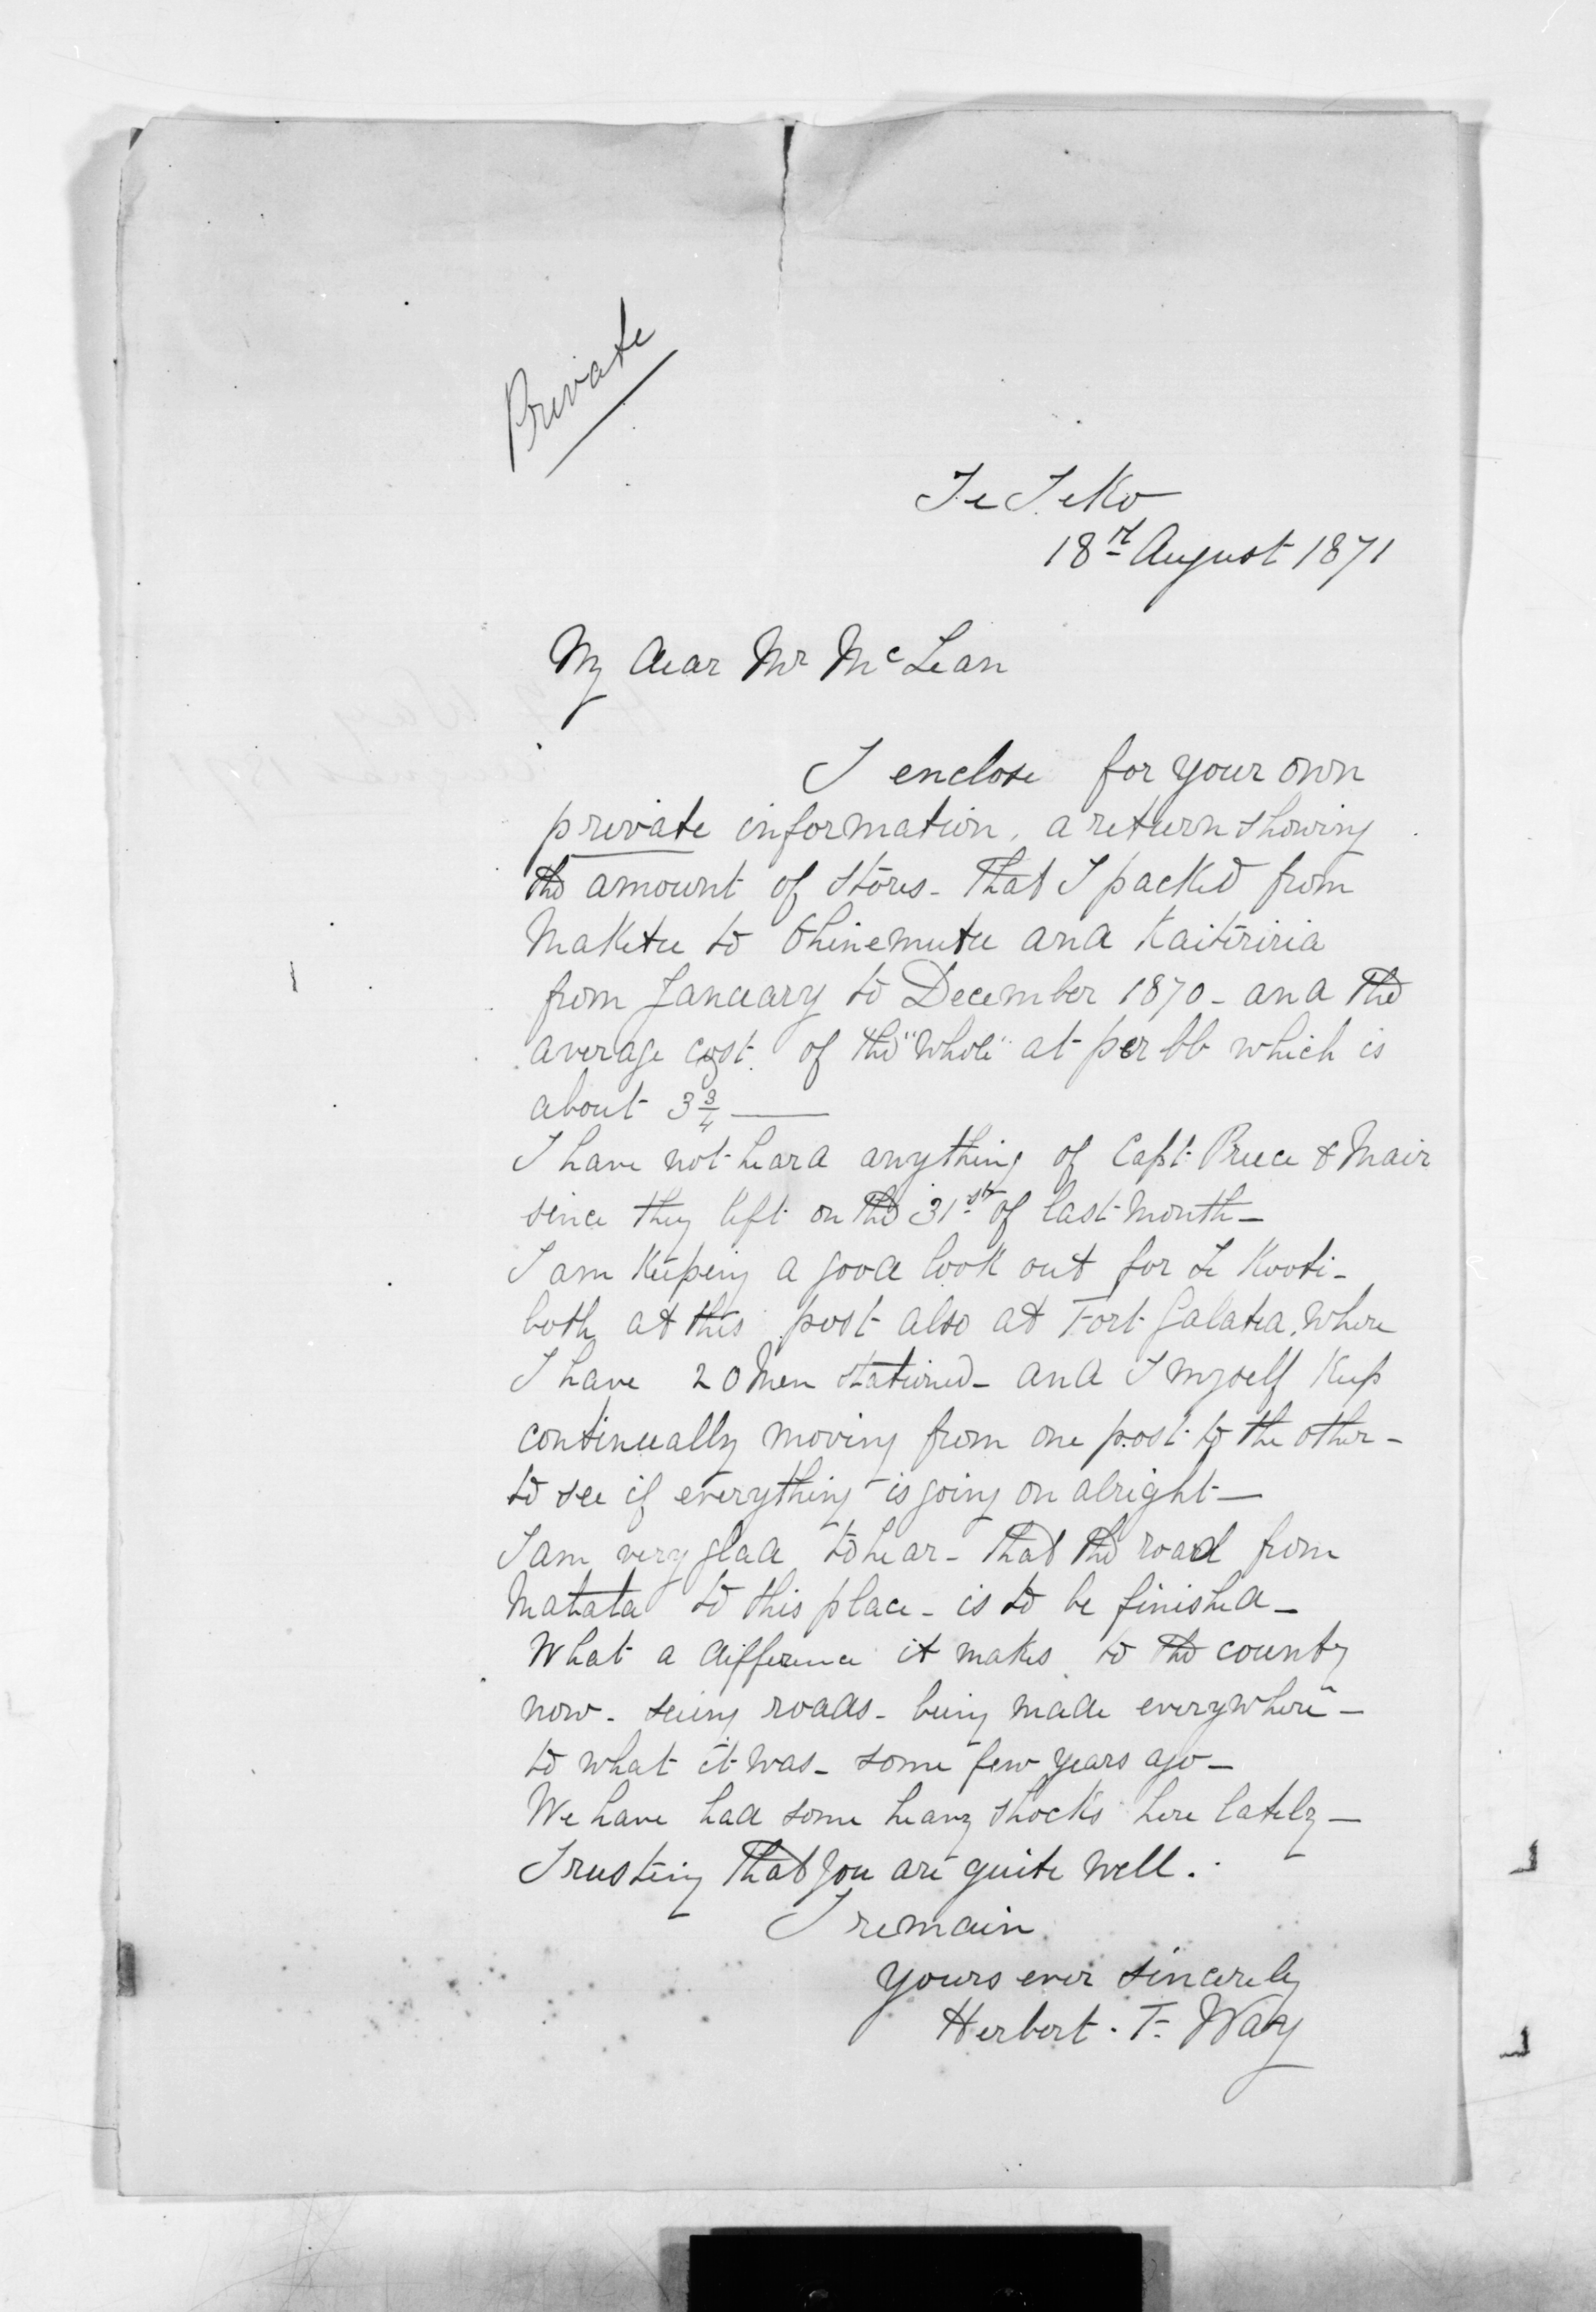 Private
Te Teko
18th August 1871
My dear Mr McLean
I enclose for your own
private information, a return showing
the amount of stores - that I packed from
Maketu to Ohinemutu and Kaiteriria
from January to December 1870 - and the
average cost. of the "whole" at per lb which is
about 3 3/4 —
I have not heard anything of Capt Preece & Mair
since they left on the 31st of last month -
I am keeping a good look out for Te Kooti -
both at this post also at Fort Galatea, where
I have 20 men stationed - and I myself keep
continually moving from one post to the other -
to see if everything is going on alright -
I am very glad to hear - that the road from
Matata to this place - is to be finished -
What a difference it makes to the county
now - seeing roads - being made everywhere -
to what it was - some few years ago -
We have had some heavy shocks here lately -
Trusting that you are quite well.
I remain
yours ever sincerely
Herbert. F. Way